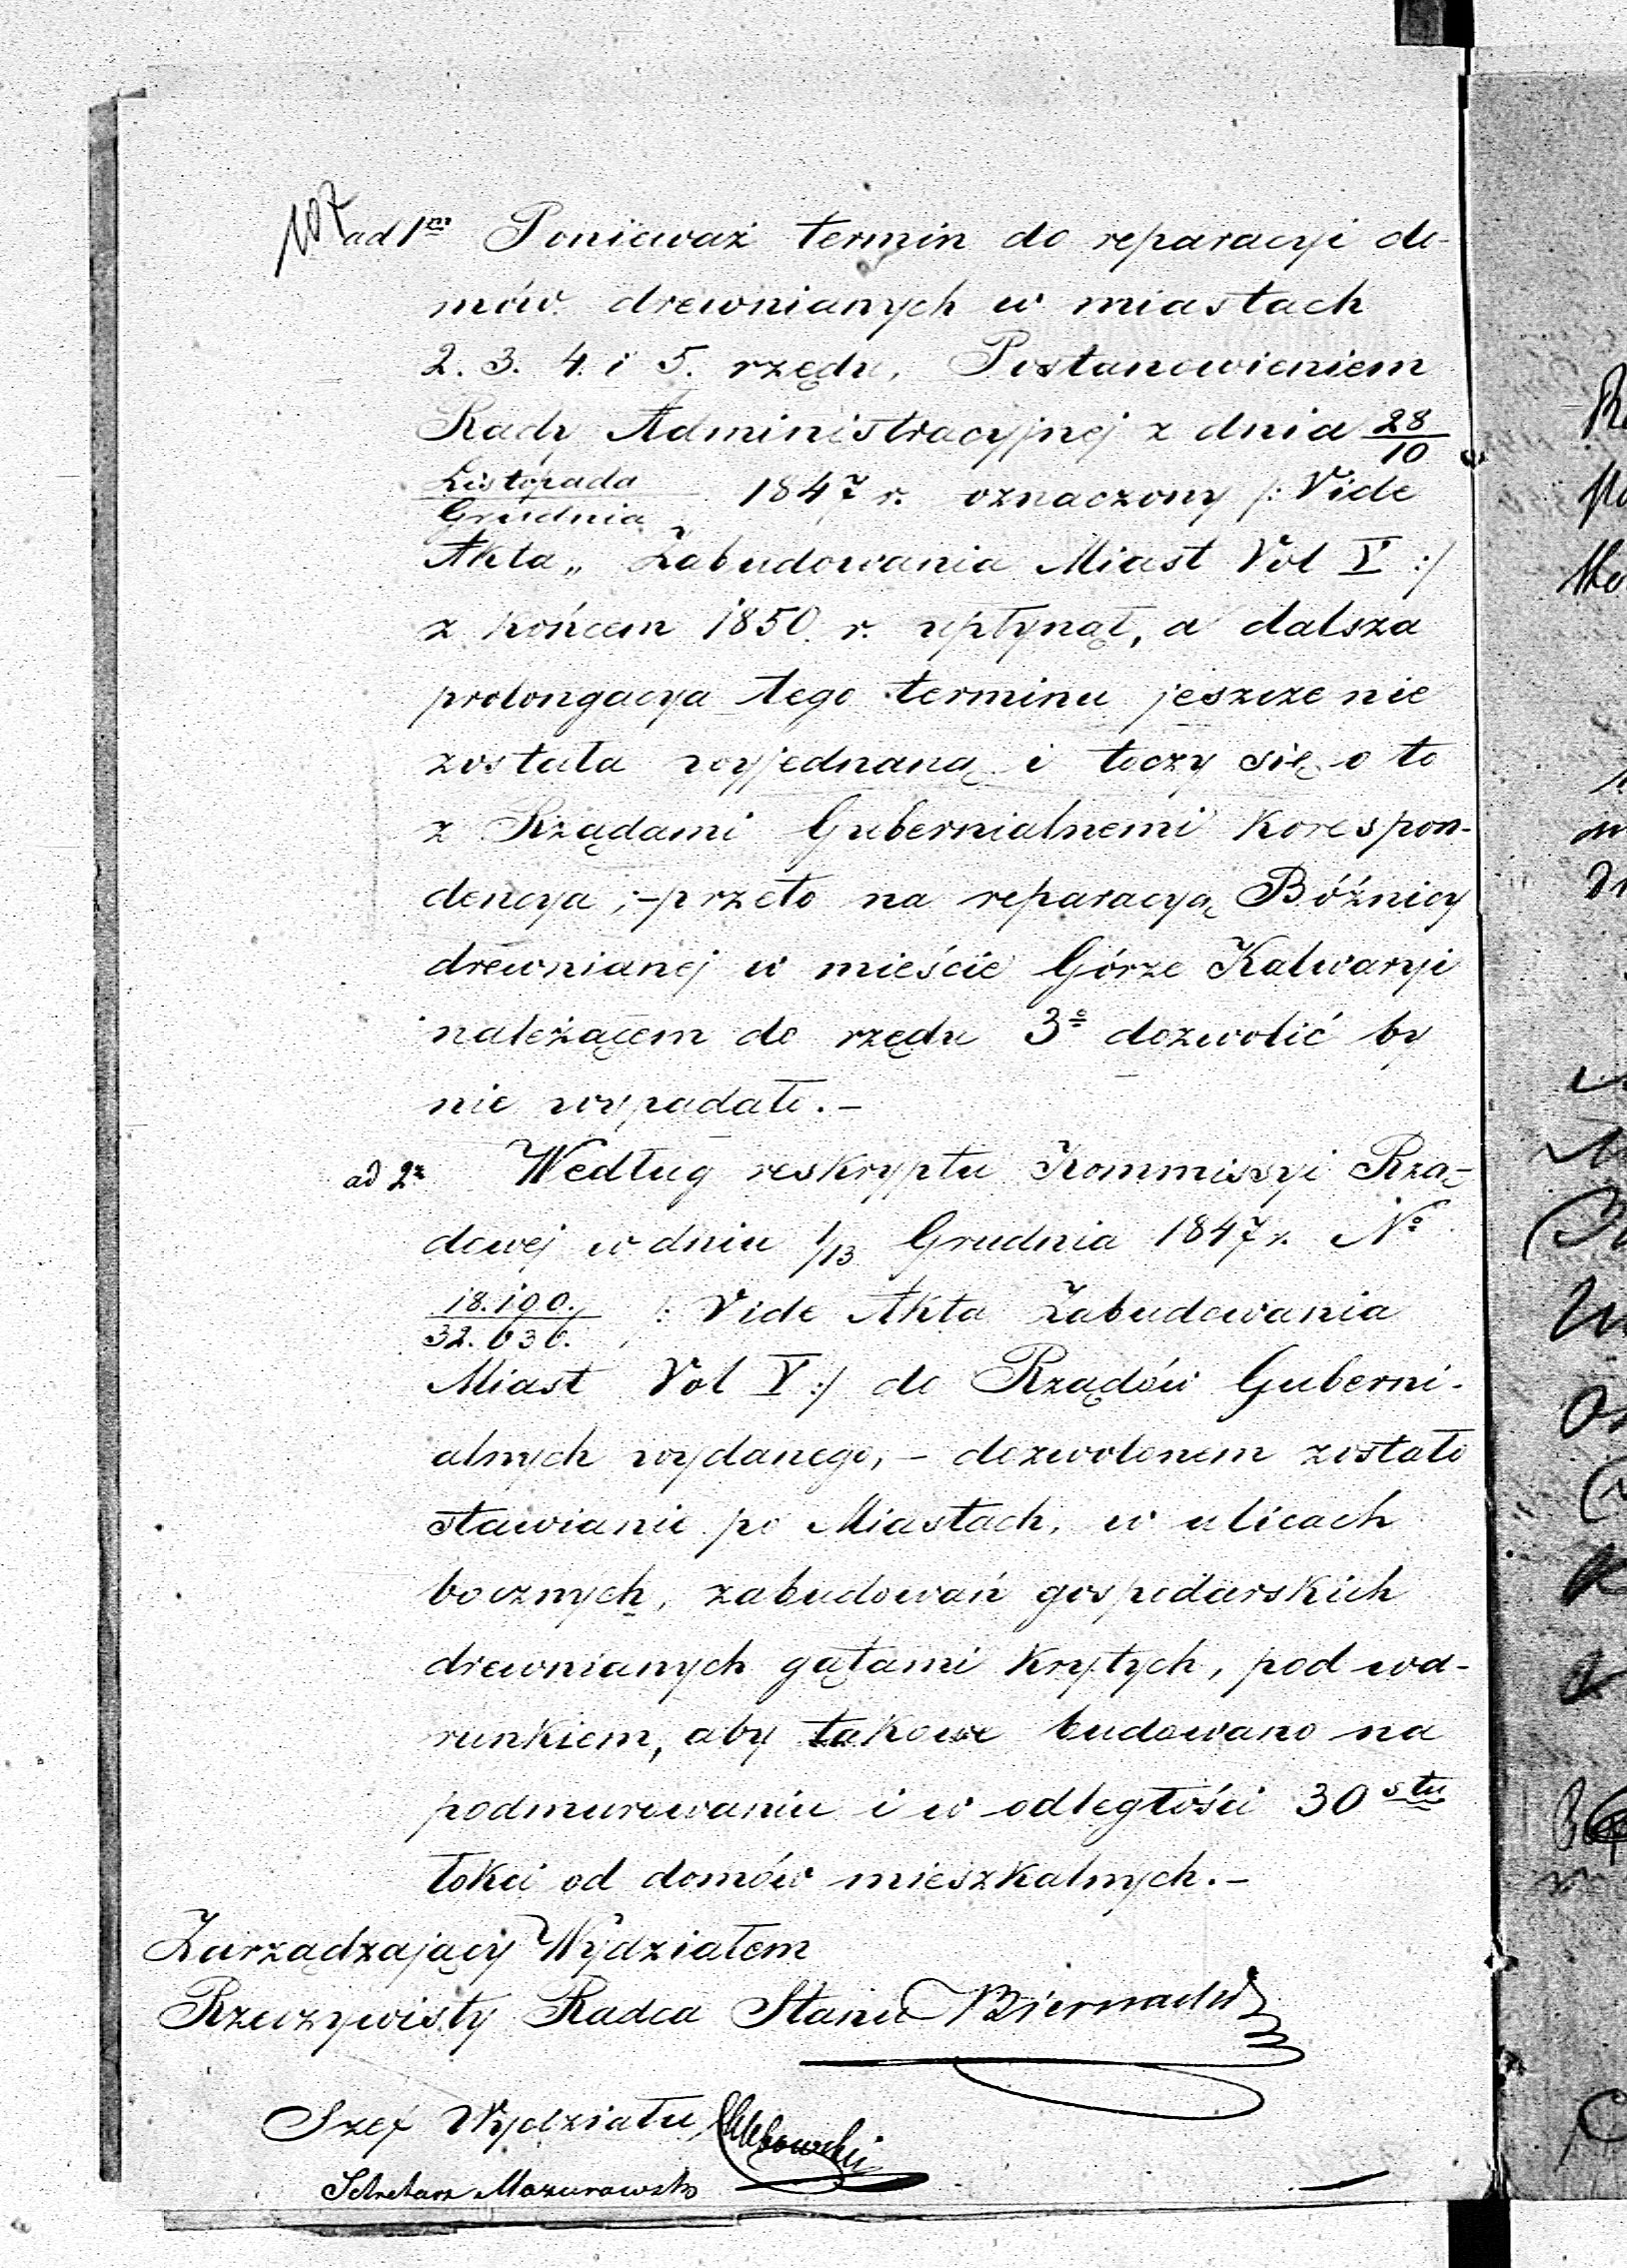 107 ad 1m Ponieważ termin do reparacyi do-
mów drewnianych w miastach
2. 3. 4. i 5. rzędu, Postanowieniem
Rady Administracyjnej z dnia 28/10
Listopada/Grudnia 1847 r. oznaczony /: Vide
Akta „ Zabudowania Miast Vol V :/
z końcem 1850. r. upłynął, a dalsza
prolongacya tego terminu jeszcze nie
została wyjednaną i toczy się o to
z Rządami Gubernialnemi korespon-
dencya ;- przeto na reparacyą Bóźnicy
drewnianej w mieście Górze Kalwaryi
należącem do rzędu 3o dozwolić by
nie wypadało.-
ad 2m Według reskryptu Kommissyi Rzą-
dowej w dniu 1/13 Grudnia 1847 r. No
18.190./32.636. /: Vide Akta Zabudowania
Miast Vol V :/ do Rządów Guberni-
alnych wydanego, - dozwolonem zostało
stawianie po Miastach, w ulicach
bocznych, zabudowań gospodarskich
drewnianych gątami krytych, pod wa-
runkiem, aby takowe budowano na
podmurowaniu i w odległości 30stu
łokci od domów mieszkalnych.-
Zarządzający Wydziałem
Rzeczywisty Radca Stanu Biernacki
Szef Wydziału
Sekretarz Mazurowski